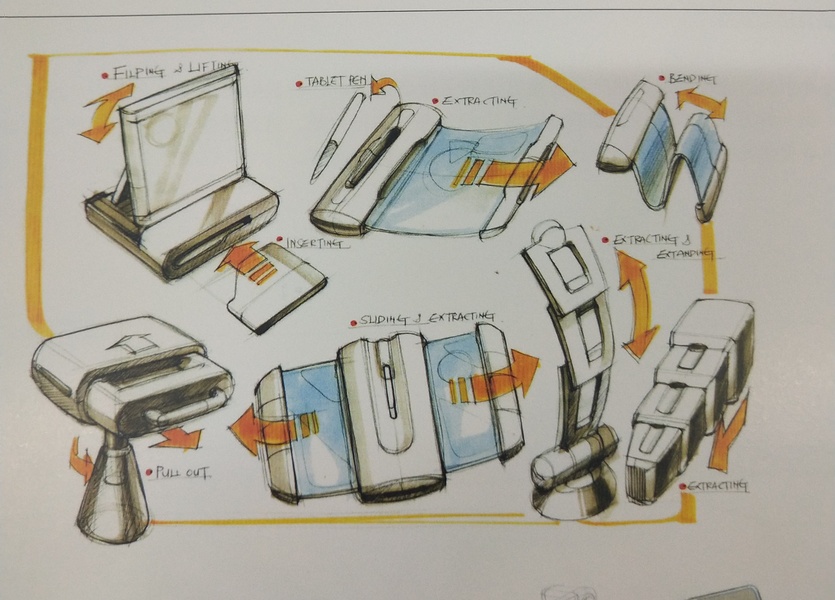 FILPING & LIFTING
TABLET PEN
EXTRACTING
BENDING
INSERTING
EXTRACTING &
EXTANDING
SLIDING & EXTRACTING
PULL OUT
EXTRACTING